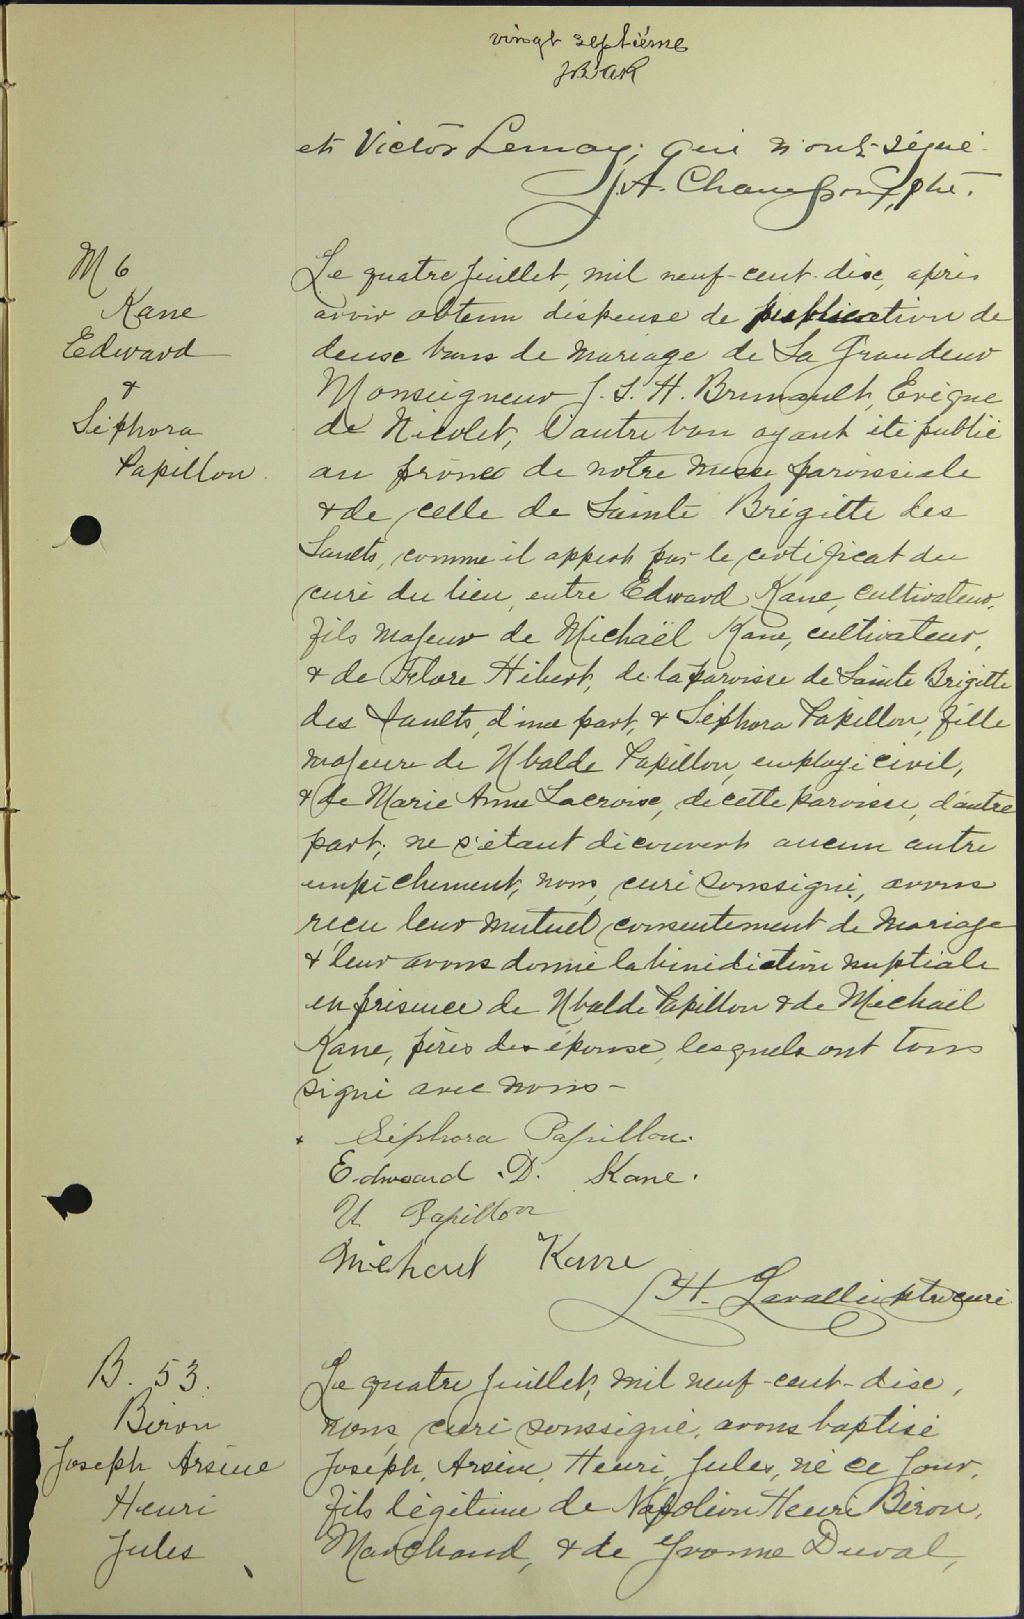 vingt septième
et Victor Lemay, qui n'ont signé.
J. A. Champoux, ptre.
M 6
Kane
Edward
&
Séphora
Papillon
Le quatre juillet, mil neuf-cent-dix, après
avoir obtenu dispense de publication de
deux bans de mariage de Sa Grandeur
Monseigneur J. S. H. Brunault, Evêque
de Nicolet, l'autre ban ayant été publié
au prône de notre messe paroissiale
& de celle de Sainte Brigitte des
Saults, comme il appert par le certificat du
curé du lieu, entre Edward Kane, cultivateur,
fils majeur de Michaël Kane, cultivateur,
& de Flore Hébert, de la paroisse de Sainte Brigitte
des Saults, d'une part, & Séphora Papillon, fille
majeure de Ubalde Papillon, employé civil,
& de Marie Anne Lacroix, de cette paroisse, d'autre
part; ne s'étant découvert aucun autre
empêchement, nous, curé soussigné, avons
reçu leur mutuel consentement de mariage
& leur avons donné la bénédiction nuptiale
en présence de Ubalde Papillon & de Michaël
Kane, pères des époux, lesquels ont tous
signé avec nous -
Séphora Papillon.
Edward D. Kane.
U. Papillon
Michael Kane
H. Lavallée ptre curé
B. 53.
Biron
Joseph Arsène
Henri
Jules
Le quatre juillet, mil neuf-cent-dix,
nous, curé soussigné, avons baptisé
Joseph, Arsène, Henri, Jules, né ce jour,
fils légitime de Napoléon Henri Biron,
Marchand, & de Yvonne Duval,